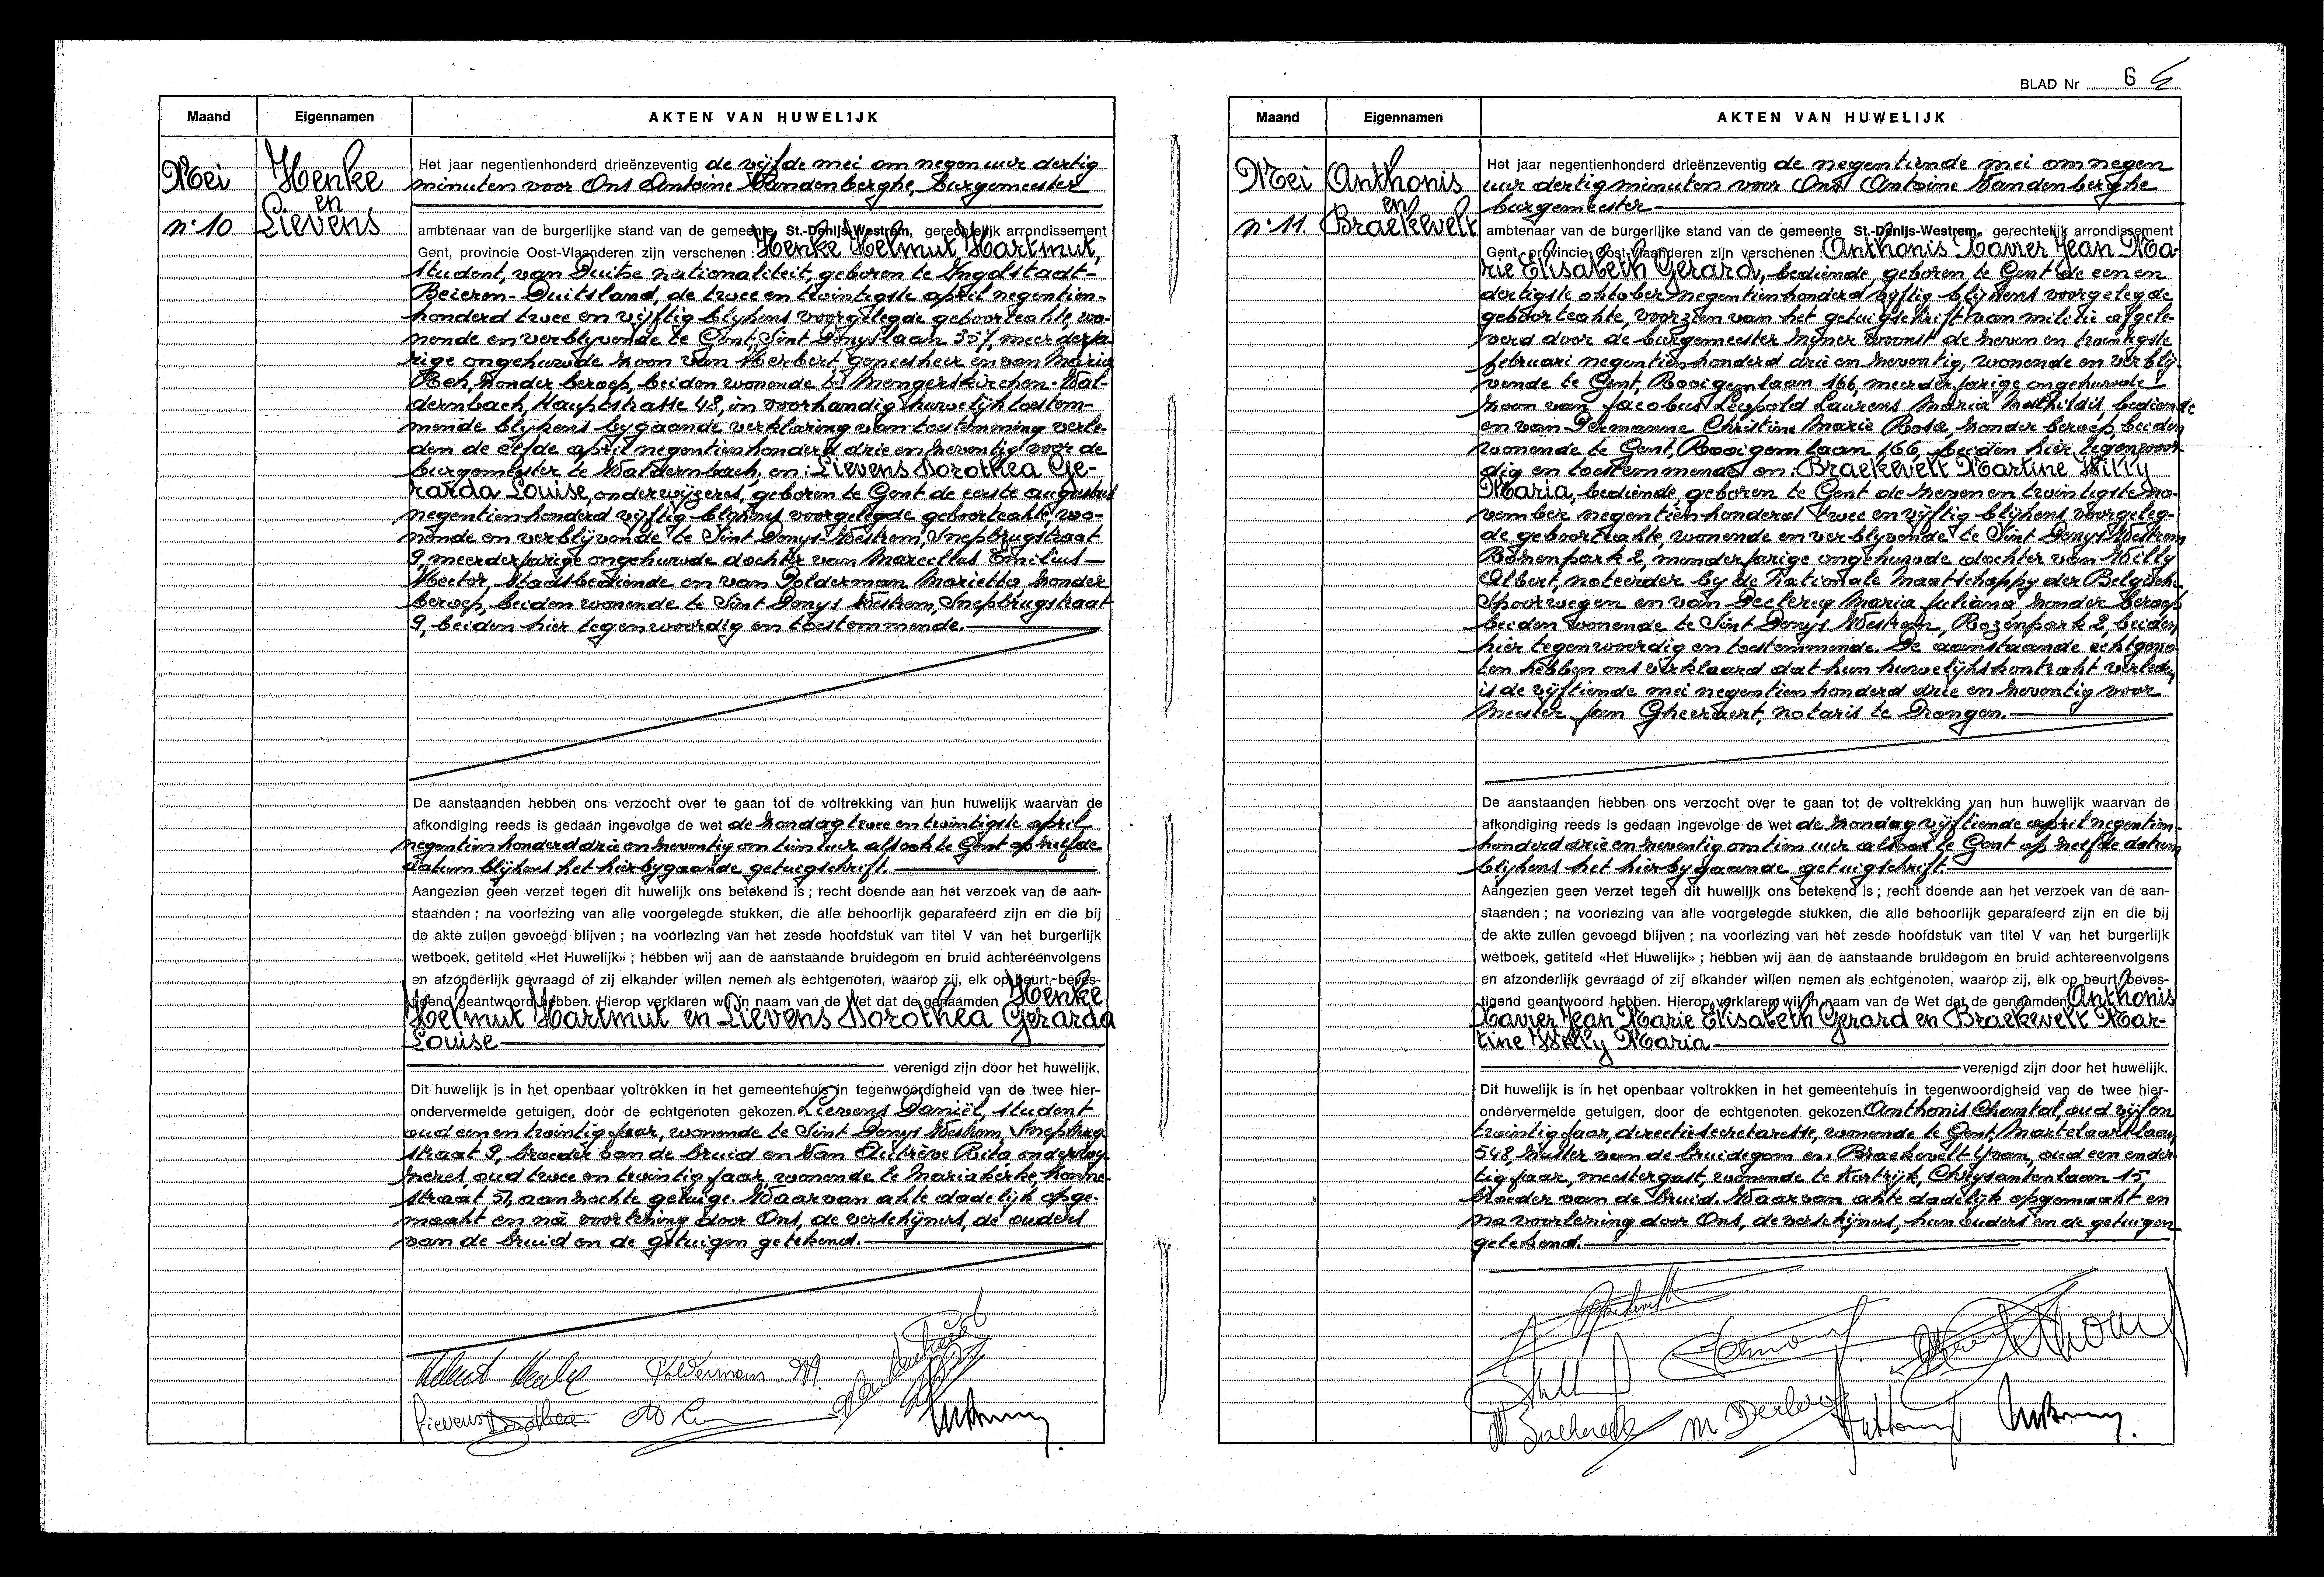 Maand Eigennamen AKTEN VAN HUWELIJK
Mei
n° 10
Henke
en
Lievens
Het jaar negentienhonderd drieënzeventig de vijfde mei om negen uur dertig
minuten voor Ons Antoine Vandenberghe, burgemeester
ambtenaar van de burgerlijke stand van de gemeente St.-Denijs-Westrem, gerechtelijk arrondissement
Gent, provincie Oost-Vlaanderen zijn verschenen : Henke Helmut Hartmut,
student, van Duitse nationaliteit, geboren te Ingolstadt-
Beieren-Duitsland, de twee en twintigste april negentien-
honderd twee en vijftig blijkens voorgelegde geboorteakte, wo-
nende en verblyvende te Gent, Sint Denyslaan 357, meerderja-
rige ongehuwde zoon van Herbert, geneesheer en van Maria
Reh, zonder beroep, beiden wonende te Mengerskirchen-Wal-
dernbach, Hauptstrasse 48, in voorhandig huwelijk toestem-
mende blijkens bygaande verklaring van toestemming verle-
den de elfde april negentienhonderd drie en zeventig voor de
burgemeester te Waldernbach, en : Lievens Dorothea Ge-
rarda Louise, onderwijzeres, geboren te Gent de eerste augustus
negentienhonderd vijftig blijkens voorgelegde geboorteakte, wo-
nende en verblijvende te Sint Denys Westrem, Snepbrugstraat
9, meerderjarige ongehuwde dochter van Marcellus Emilius
Hector, Staatsbediende en van Polderman Marietta zonder
beroep, beiden wonende te Sint Denys Westrem, Snepbrugstraat
9, beiden hier tegenwoordig en toestemmende.
De aanstaanden hebben ons verzocht over te gaan tot de voltrekking van hun huwelijk waarvan de
afkondiging reeds is gedaan ingevolge de wet de zondag twee en twintigste april
negentienhonderd drie en zeventig om tien uur alsook te Gent op zelfde
datum blijkens het hierbygaande getuigschrift.
Aangezien geen verzet tegen dit huwelijk ons betekend is ; recht doende aan het verzoek van de aan-
staanden ; na voorlezing van alle voorgelegde stukken, die alle behoorlijk geparafeerd zijn en die bij
de akte zullen gevoegd blijven ; na voorlezing van het zesde hoofdstuk van titel V van het burgerlijk
wetboek, getiteld «Het Huwelijk» ; hebben wij aan de aanstaande bruidegom en bruid achtereenvolgens
en afzonderlijk gevraagd of zij elkander willen nemen als echtgenoten, waarop zij, elk op beurt, beves-
tigend geantwoord hebben. Hierop verklaren wij in naam van de Wet dat de genaamden Henke
Helmut Hartmut en Lievens Dorothea Gerarda
Louise
verenigd zijn door het huwelijk.
Dit huwelijk is in het openbaar voltrokken in het gemeentehuis in tegenwoordigheid van de twee hier-
ondervermelde getuigen, door de echtgenoten gekozen. Lievens Daniël, student
oud een en twintig jaar, wonende te Sint Denys Westrem, Snepbrug-
straat 9, broeder van de bruid en Van Rita onderwij-
zeres, oud twee en twintig jaar, wonende te Mariakerke,
straat 51, aanzochte getuige. Waarvan akte dadelijk opge-
maakt en na voorlezing door Ons, de verschijners, de ouders
van de bruid en de getuigen getekend.
Helmut Henke Polderman M.
Lievens Dorothea
BLAD Nr 6
Maand Eigennamen AKTEN VAN HUWELIJK
Mei
n° 11.
Anthonis
en
Braekevelt
Het jaar negentienhonderd drieënzeventig de negentiende mei om negen
uur dertig minuten voor Ons Antoine Vandenberghe
burgemeester
ambtenaar van de burgerlijke stand van de gemeente St.-Denijs-Westrem, gerechtelijk arrondissement
Gent, provincie Oost-Vlaanderen zijn verschenen : Anthonis Xavier Jean Ma-
rie Elisabeth Gerard, bediende, geboren te Gent de een en
dertigste oktober negentienhonderd vijftig blijkens voorgelegde
geboorteakte, voorzien van het getuigschrift van militie afgele-
verd door de burgemeester zijner woonst de zeven en twintigste
februari negentienhonderd drie en zeventig, wonende en verblij-
vende te Gent, Rooigemlaan 166, meerderjarige ongehuwde
zoon van Jacobus Leopold Laurens Maria Mathildis, bediende
en van Permanne Christine Marie Rosa, zonder beroep, beiden
wonende te Gent, Rooigemlaan 166, beiden hier tegenwoor-
dig en toestemmend en : Braekevelt Martine Willy
Maria, bediende, geboren te Gent de zeven en twintigste no-
vember negentienhonderd twee en vijftig blijkens voorgeleg-
de geboorteakte, wonende en verblyvende te Sint Denys Westrem
Rozenpark 2, minderjarige ongehuwde dochter van Willy
Albert, noteerder by de Nationale Maatschappy der Belgische
Spoorwegen en van Declercq Maria Juliana, zonder beroep
beiden wonende te Sint Denys Westrem, Rozenpark 2, beiden
hier tegenwoordig en toestemmende. De aanstaande echtgeno-
ten hebben ons verklaard dat hun huwelijkskontrakt verleden
is de vijftiende mei negentienhonderd drie en zeventig voor
Meester Jan Gheeraert, notaris te Drongen.
De aanstaanden hebben ons verzocht over te gaan tot de voltrekking van hun huwelijk waarvan de
afkondiging reeds is gedaan ingevolge de wet de zondag vijftiende april negentien-
honderd drie en zeventig om tien uur alsook te Gent op zelfde datum
blijkens het hierbygaande getuigschrift.
Aangezien geen verzet tegen dit huwelijk ons betekend is ; recht doende aan het verzoek van de aan-
staanden ; na voorlezing van alle voorgelegde stukken, die alle behoorlijk geparafeerd zijn en die bij
de akte zullen gevoegd blijven ; na voorlezing van het zesde hoofdstuk van titel V van het burgerlijk
wetboek, getiteld «Het Huwelijk» ; hebben wij aan de aanstaande bruidegom en bruid achtereenvolgens
en afzonderlijk gevraagd of zij elkander willen nemen als echtgenoten, waarop zij, elk op beurt, beves-
tigend geantwoord hebben. Hierop verklaren wij in naam van de Wet dat de genaamden Anthonis
Xavier Jean Marie Elisabeth Gerard en Braekevelt Mar-
tine Willy Maria
verenigd zijn door het huwelijk.
Dit huwelijk is in het openbaar voltrokken in het gemeentehuis in tegenwoordigheid van de twee hier-
ondervermelde getuigen, door de echtgenoten gekozen Anthonis Chantal, oud vijf en
twintig jaar, directiesecretaresse, wonende te Gent, Martelaarslaan
548, zuster van de bruidegom en Braekevelt Yvan, oud een en der-
tig jaar, meestergast, wonende te Kortrijk, Chrysantenlaan 15,
broeder van de bruid. Waarvan akte dadelijk opgemaakt en
na voorlezing door Ons, de verschijners, hun ouders en de getuigen
getekend.